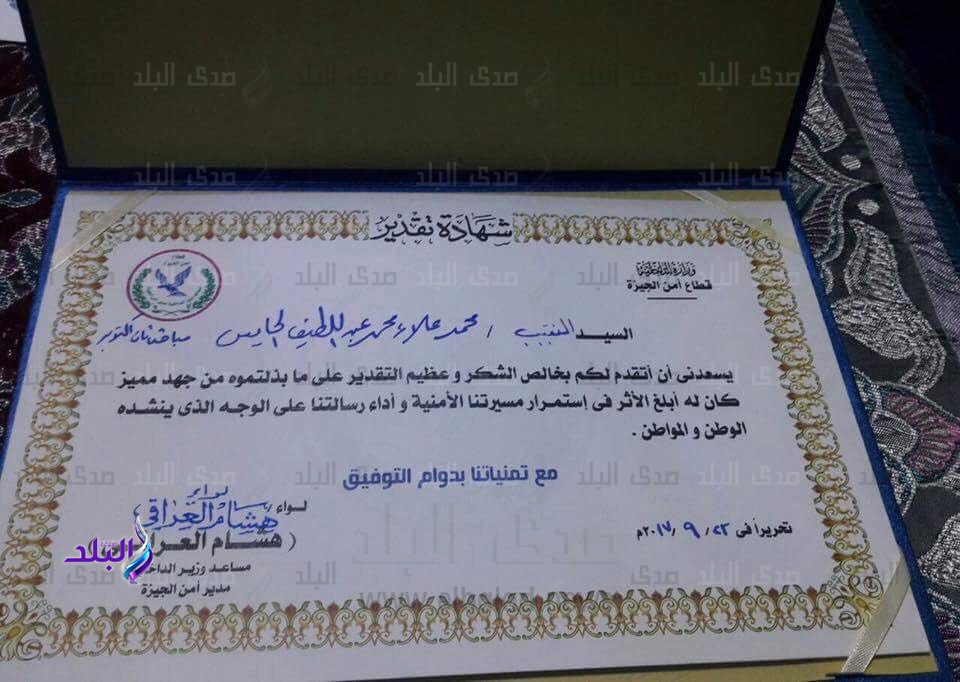 شهادة تقدير
وزارة الداخلية
قطاع أمن الجيزة
السيد النقيب / محمد علاء محمد عبد اللطيف الحايس مباحث ثان أكتوبر
يسعدنى أن أتقدم لكم بخالص الشكر و عظيم التقدير على ما بذلتموه من جهد مميز
كان له أبلغ الأثر فى إستمرار مسيرتنا الأمنية و أداء رسالتنا على الوجه الذى ينشده
الوطن و المواطن .
مع تمنياتنا بدوام التوفيق
تحريراً فى ٢٣ / ٩ / ٢٠١٧م
لواء / لواء
هشام العراقى
( هشام العرا
مساعد وزير الداخ
مدير أمن الجيزة
صدى البلد
البلد